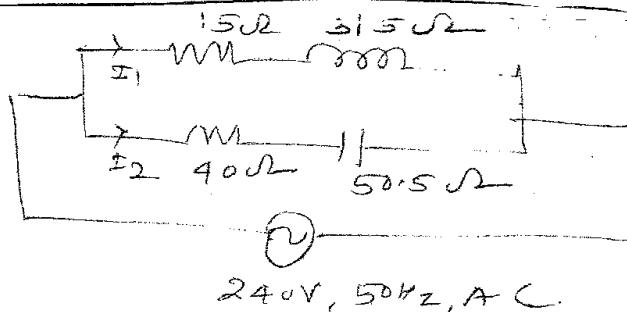 15Ω 31.5Ω
I1
I2 40Ω 50.5Ω
240V, 50Hz, A C.